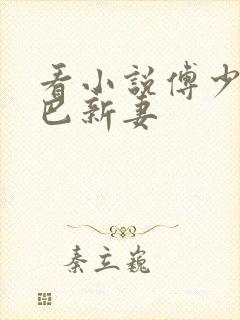 看小説傅少
巴新妻
秦立巍